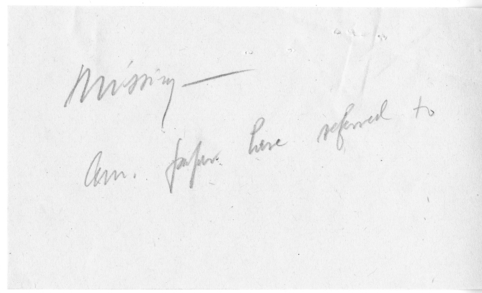 Missing —
Am. paper here referred to